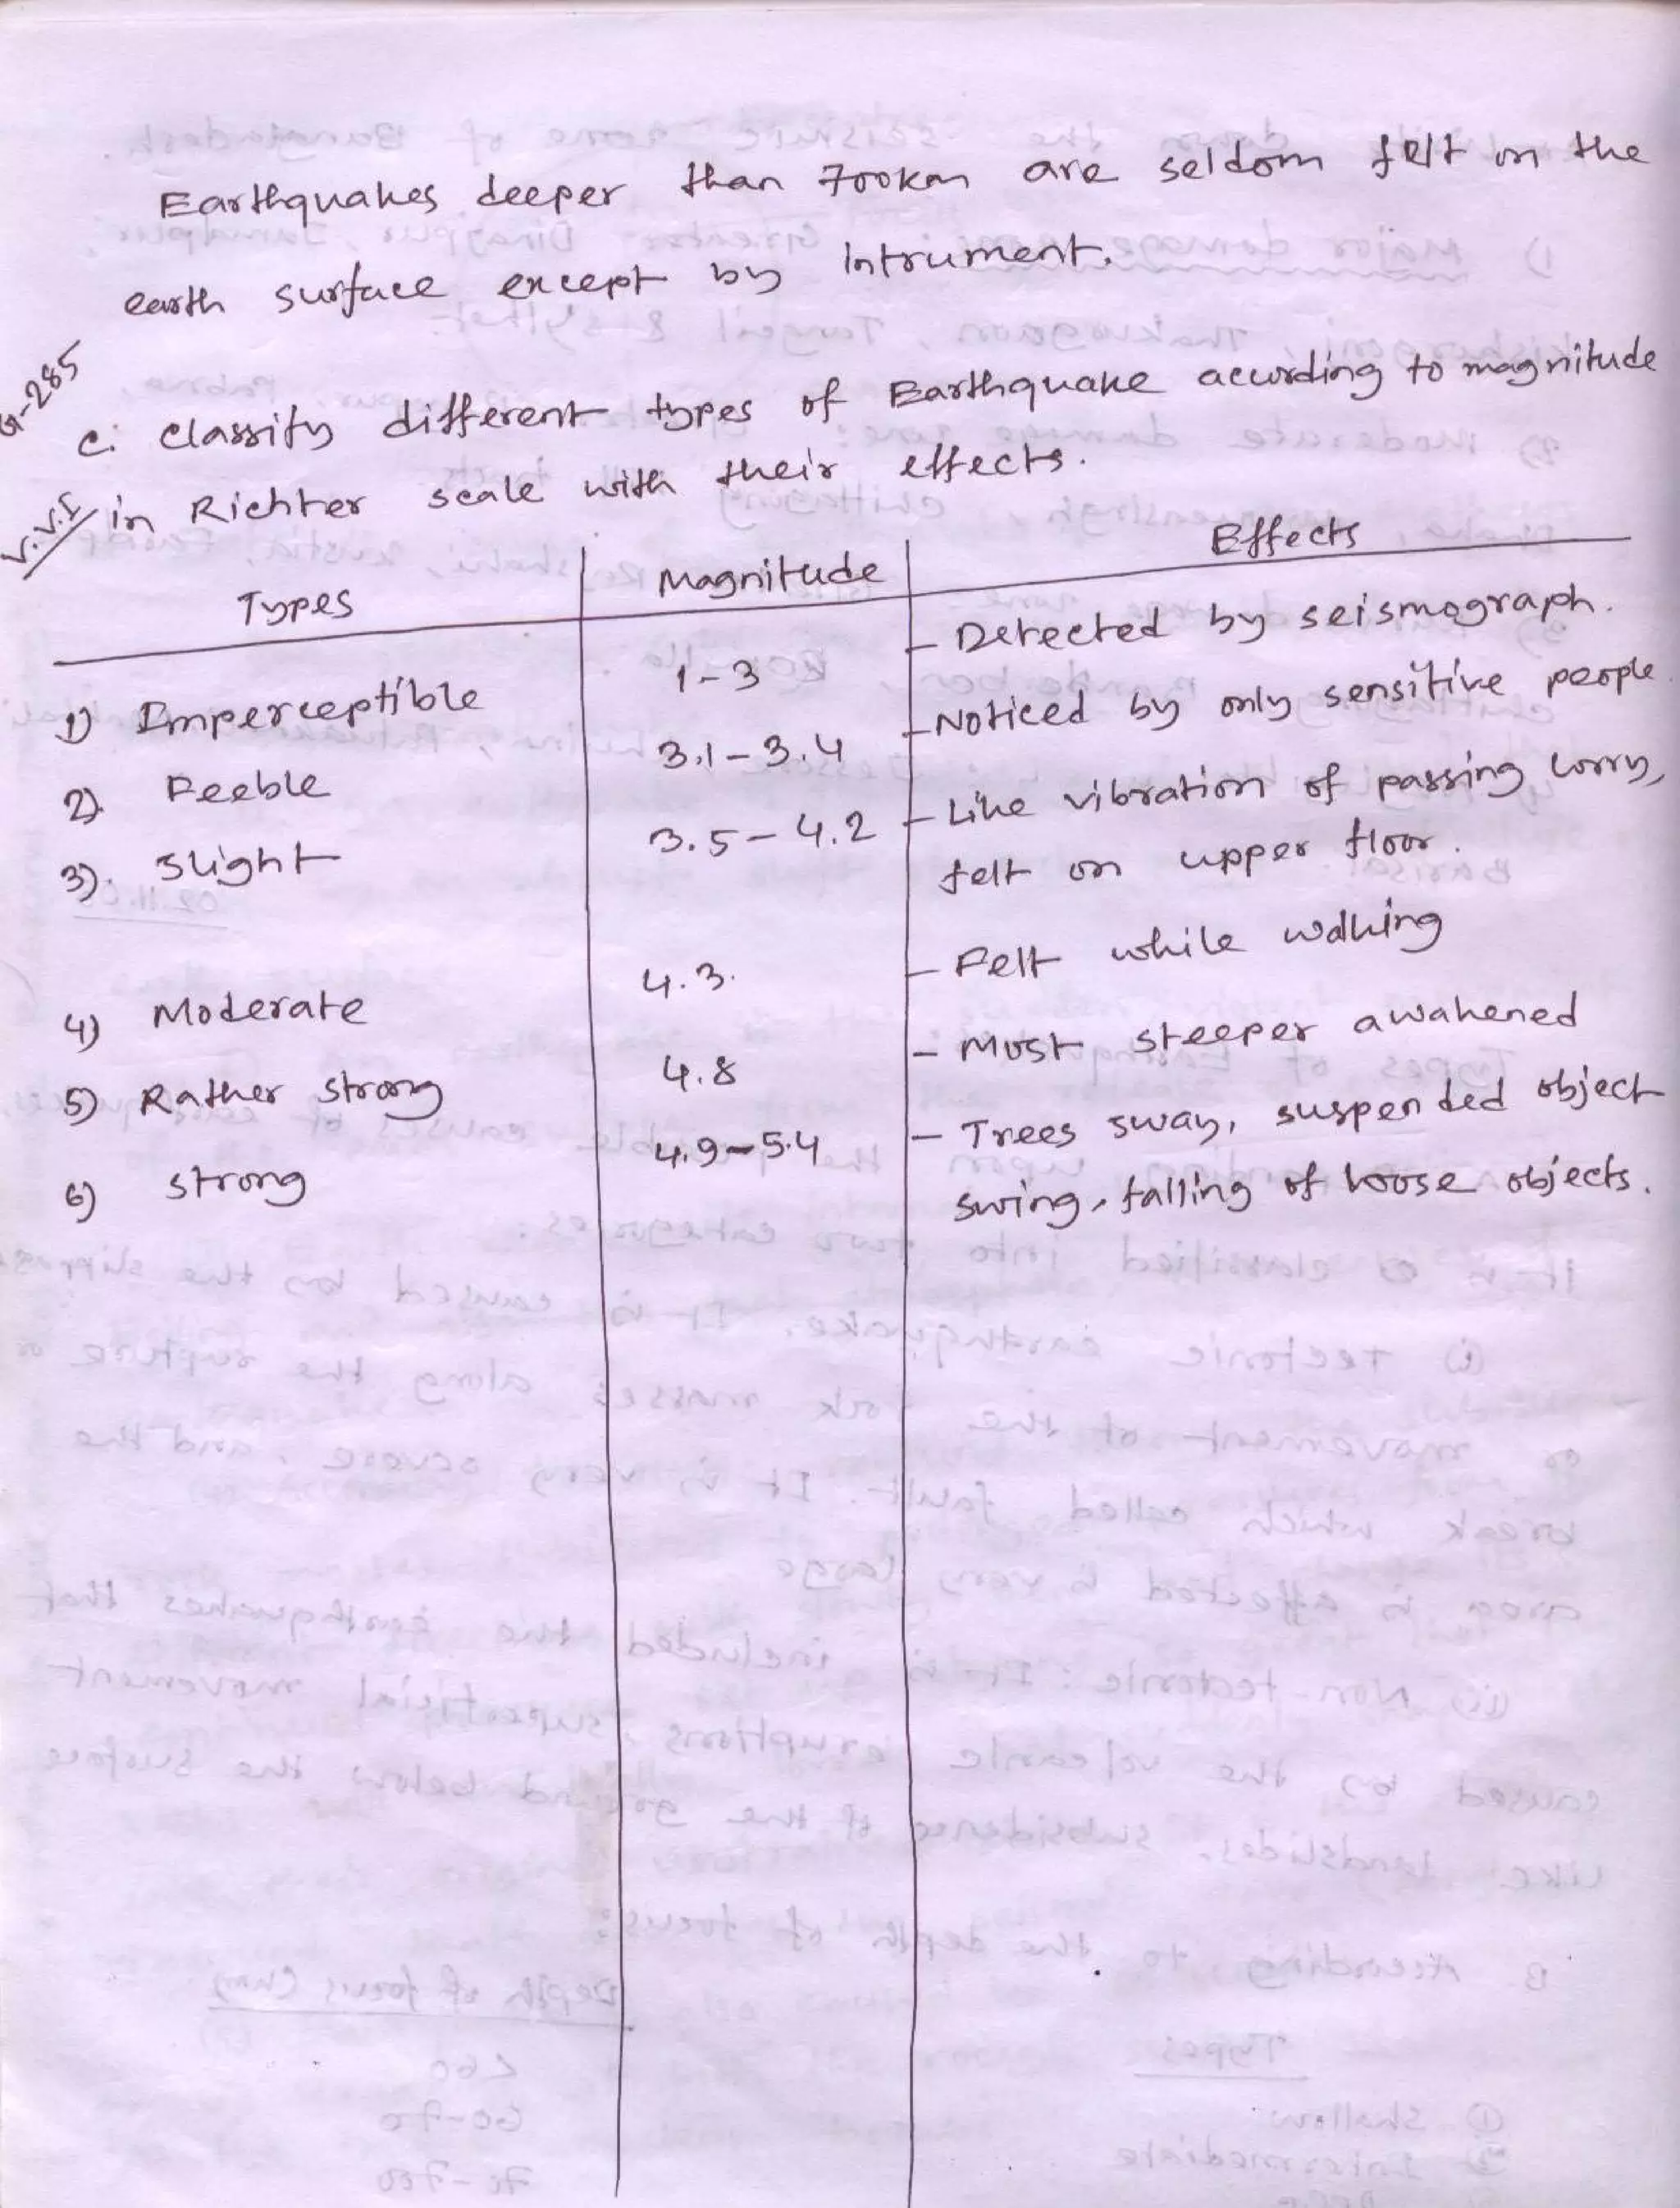 Earthquakes deeper than 700km are seldom felt on the
earth surface except by intrument.
G-285
C. Classify different types of Earthquake according to magnitude
V.V.I in Richter scale with their effects.
Types Magnitude Effects
1) Imperceptible 1-3 - Detected by seismograph.
2) Feeble 3.1-3.4 - Noticed by only sensitive people.
3). Slight 3.5-4.2 - Like vibration of passing lorry,
felt on upper floor.
4) Moderate 4.3. - Felt while walking
5) Rather strong 4.8 - Most steeper awakened
6) strong 4.9-5.4 - Trees sway, suspended object
swing, falling of loose objects.